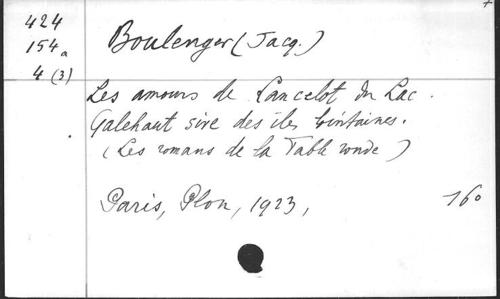 424
154a
4 (3)
Boulenger (Jacq.)
Les amours de Lancelot du Lac.
Galehaut sire des îles lointaines.
(Les romans de la Table ronde)
Paris, Plon, 1923,
16o